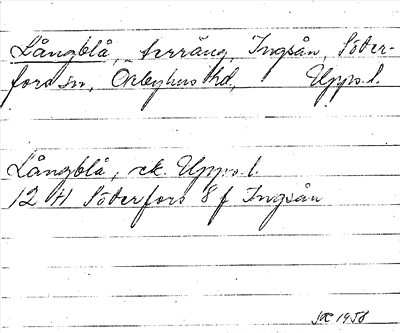 Långblå, terräng, Ingsån, Söder-
fors sn, Örbyhus hd, Upps. l.
Långblå, ek. Upps. l.
12 H Söderfors 8 f Ingsån
1958